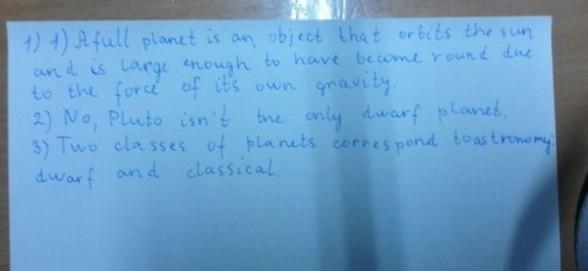 1) 1) A full planet is an object that orbits the sun
and is large enough to have become round due
to the force of its own gravity.
2) No, Pluto isn't the only dwarf planet.
3) Two classes of planets correspond to astronomy:
dwarf and classical.